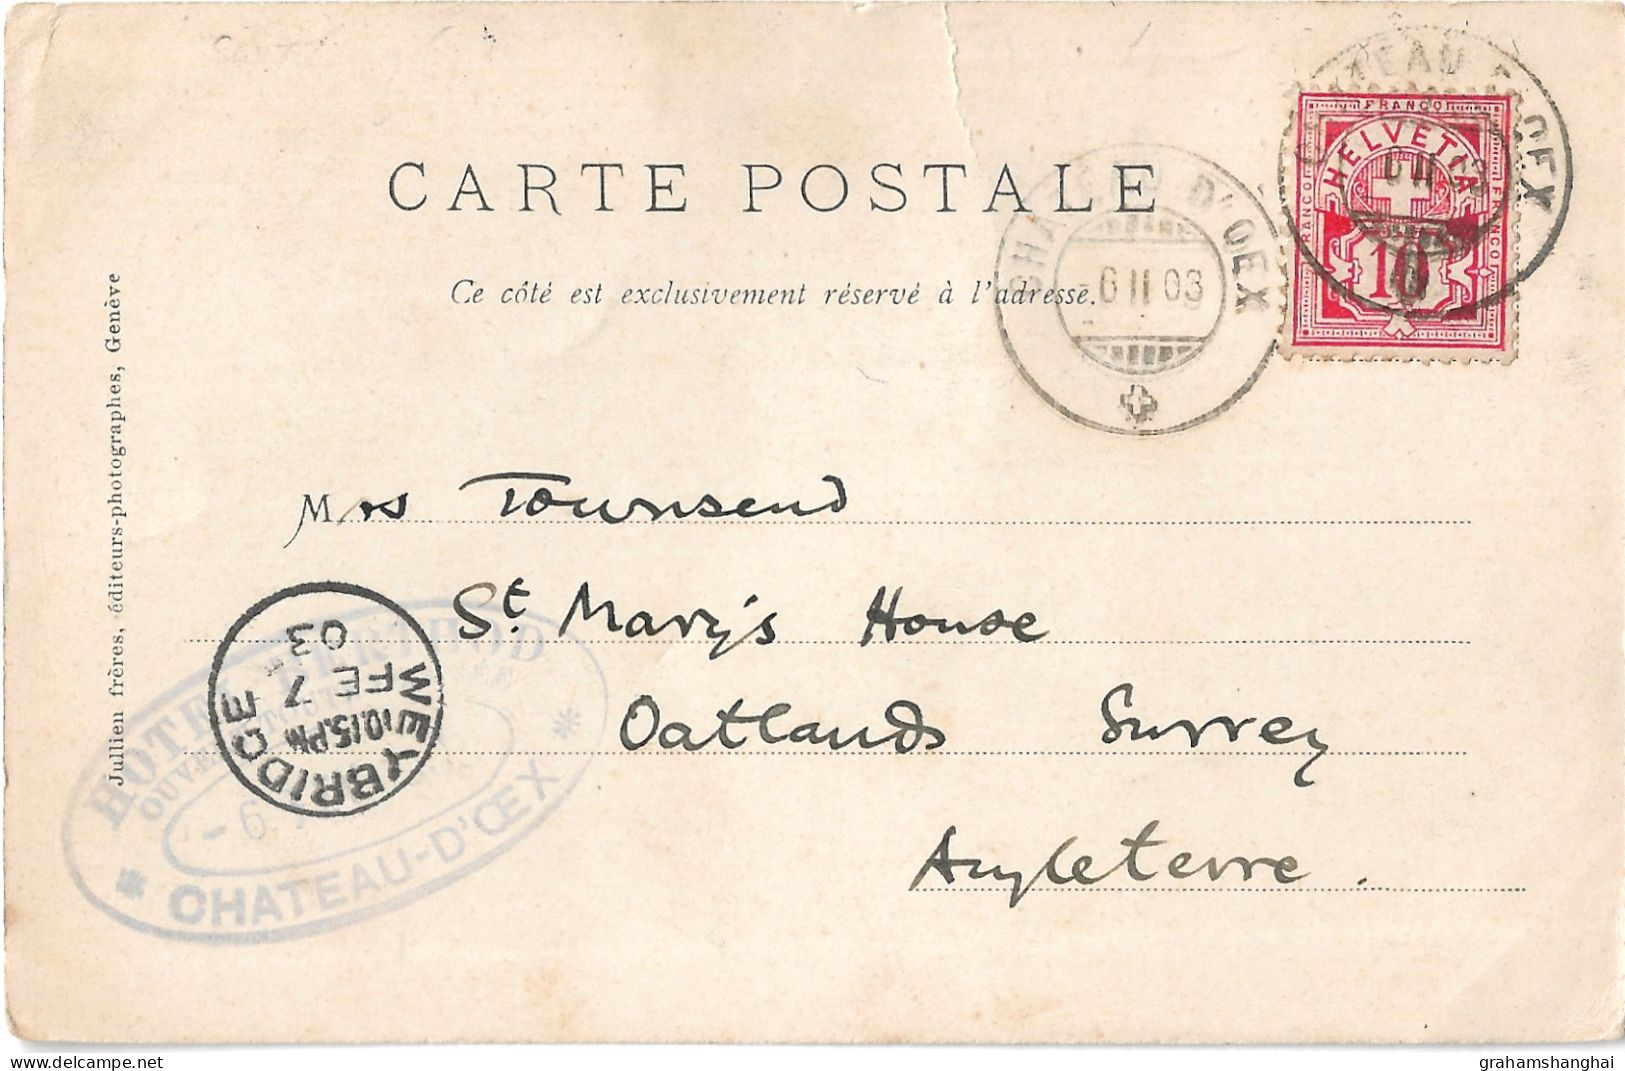 CARTE POSTALE
Ce côté est exclusivement réservé à l'adresse.
CHATEAU D'OEX
-6 II 03
CHATEAU D'OEX
FRANCO
HELVETIA
FRANCO
FRANCO
10
Jullien frères, éditeurs-photographes, Genève
Mrs Townsend
St. Mary's House
Oatlands Surrey
Angleterre.
WEYBRIDGE
10.15.PM
FE 7
03
HOTEL BERTHOD
CHATEAU-D'ŒX
grahamshanghai